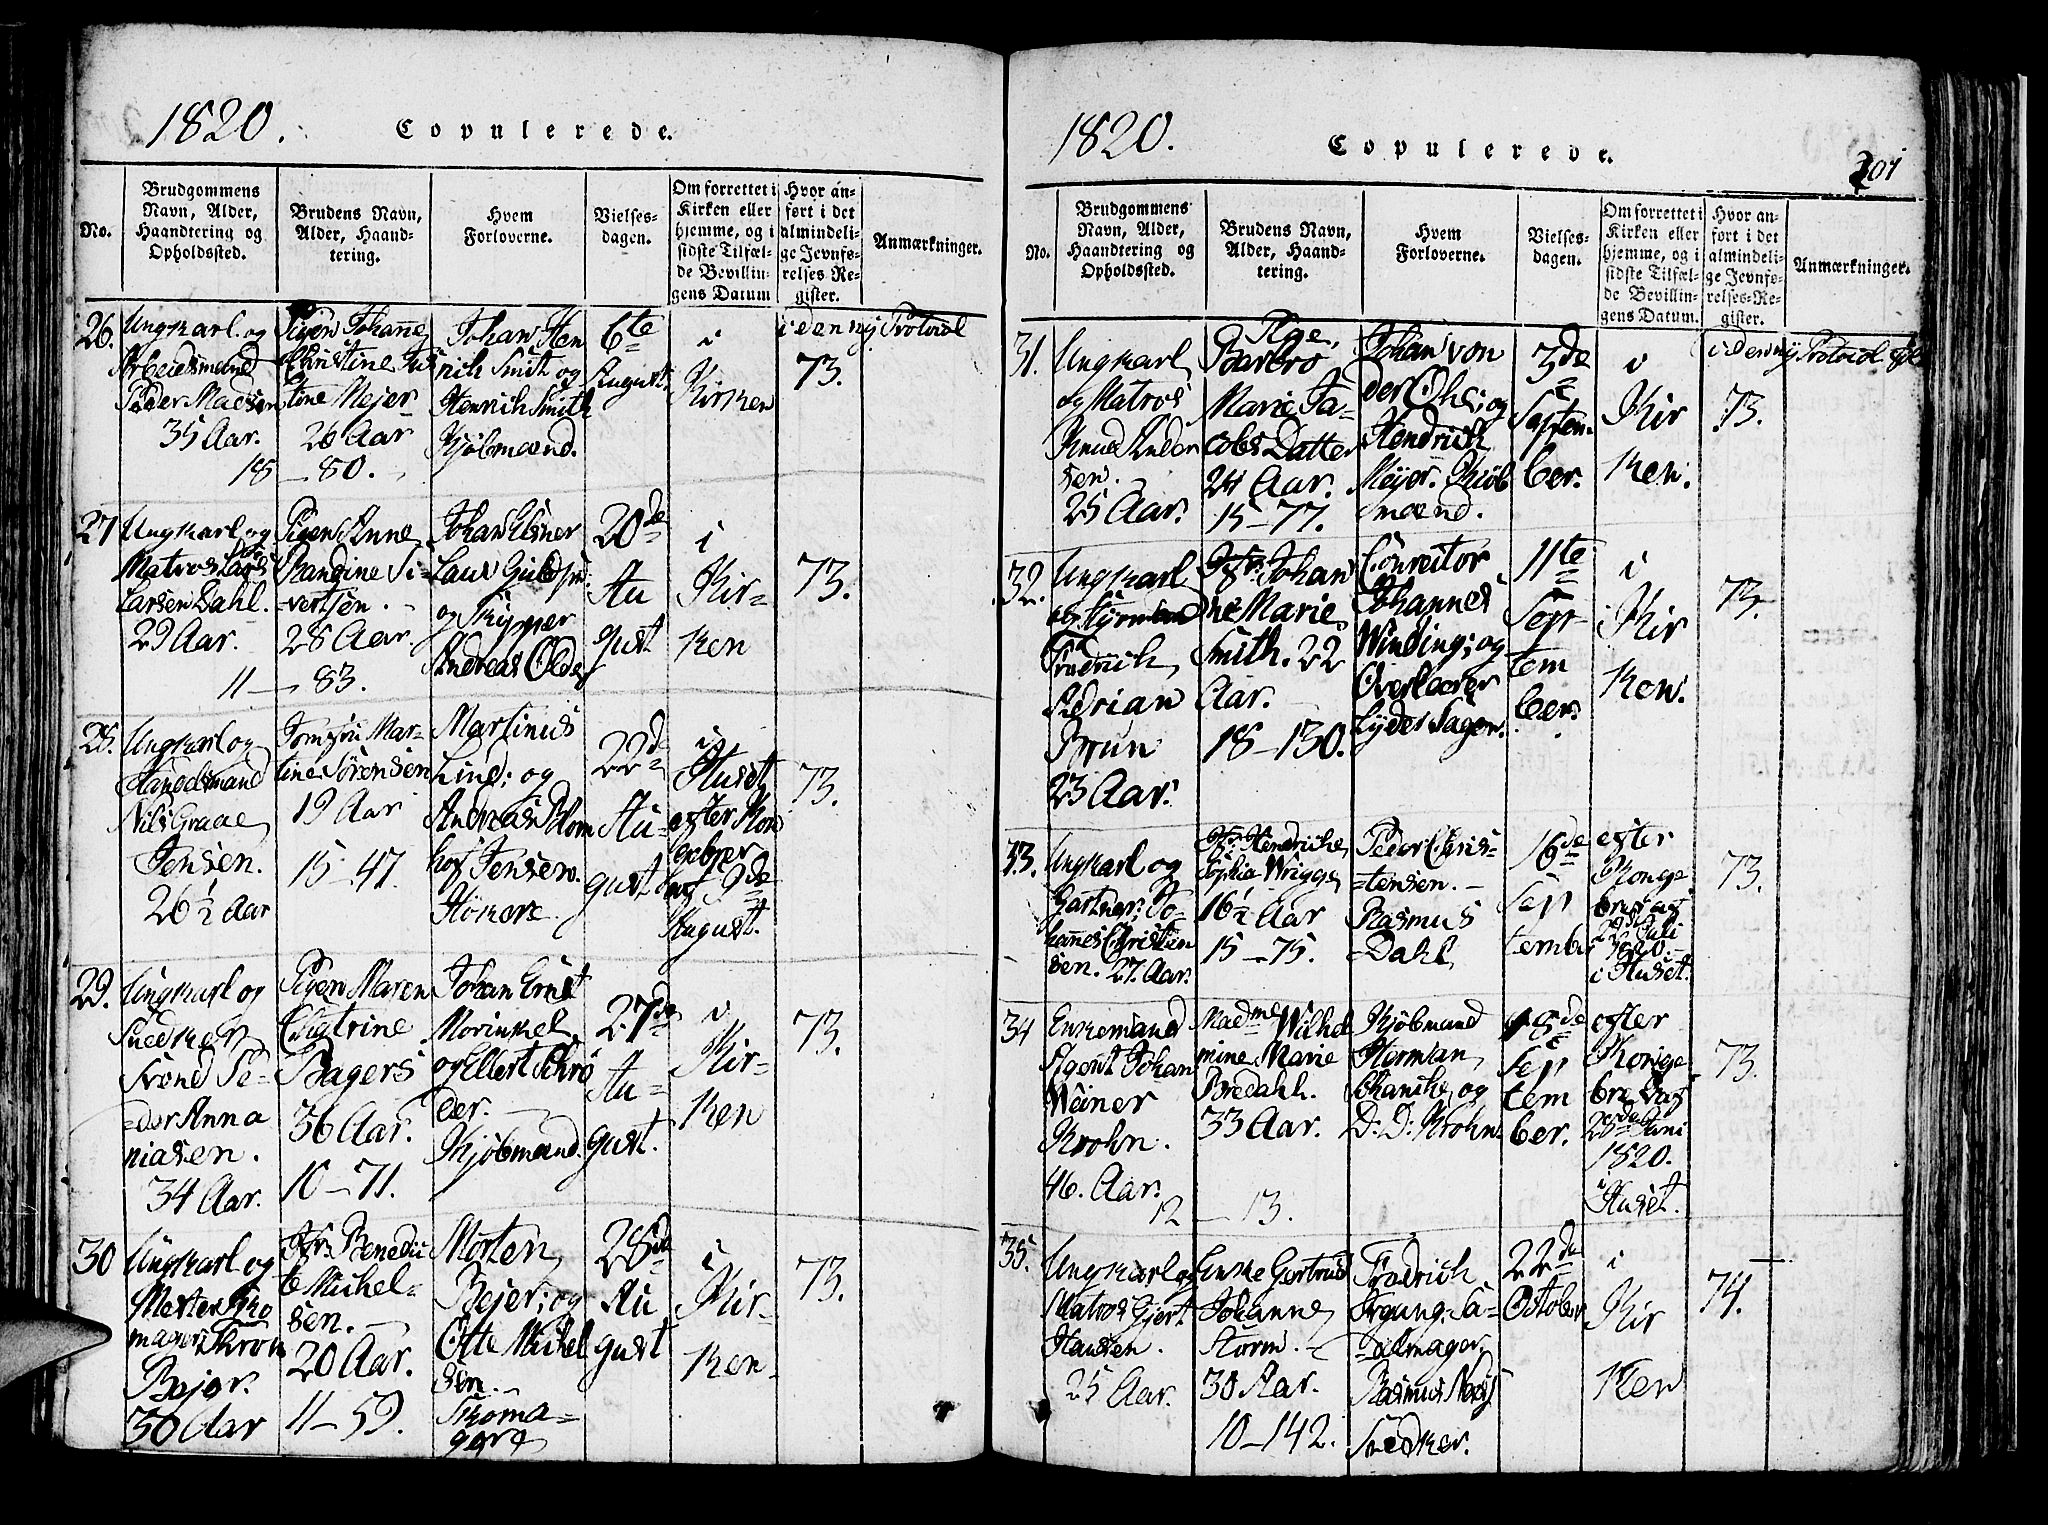 1820. Copulerede.
No.
Brudgommens Navn, Alder, Haandtering og Opholdssted.
Brudens Navn, Alder, Haandtering.
Hvem Forloverne.
Vielsesdagen.
Om forrettet i Kirken eller hjemme, og i sidste Tilfælde Bevillingens Datum
Hvor anført i det almindelige Jevnførelses Register.
Anmærkninger.
26.
Ungkarl og
Arbeidsmand
Peder Madsen
35 Aar.
Pigen Johanne
Christine
tine Mejer
26 Aar
18 – 80.
Johan Hen
rich Smith og
Henrich Smith
Kjøbmænd.
6te
August
i
Kirken
i den ny Protocol
73.
27
Ungkarl og
Matros Lars
Larsen Dahl.
29 Aar.
Pigen Anne
Randine Si-
vertsen.
28 Aar.
11 – 83.
Johan Elsner
og Skipper
Andreas
20de
Au
gust
i
Kir-
ken
73.
28.
Ungkarl og
Handelsmand
Nils Graae
Jensen.
26½ Aar
Jomfru Mar-
tine Sørensen
19 Aar
15 – 47.
Martinus
Lind; og
Andreas Blom
hof Jensen.
Hökere
22de
Au-
gust
i
Huset
efter Kon
gebrev
af 2de
August.
73.
29.
Ungkarl og
Snedker
Svend Pe-
der Anna
niasen.
34 Aar.
Pigen Maren
Catrine
Bagers
36 Aar.
10 – 71.
Johan Ernst
Morinkel
og Ellert Schrö
der.
Kjøbmænd.
27de
Au-
gust.
i
Kir-
ken
73.
30
Ungkarl og
Mester Sko
mager
Bejer.
30 Aar
Jfr. Benedic
te Michel-
sen.
20 Aar.
11 – 59.
Morten
Bejer; og
Otte Michel
sen.
Skoma-
gere
28de
Au
gust
i
Kir-
ken
73.
1820. Copulerede.
201
No.
Brudgommens Navn, Alder, Haandtering og Opholdssted.
Brudens Navn, Alder, Haandtering.
Hvem Forloverne.
Vielsesdagen.
Om forrettet i Kirken eller hjemme, og i sidste Tilfælde Bevillingens Datum.
Hvor anført i det almindelige Jevnførelses-Register.
Anmærkninger.
31.
Ungkarl
og Matros
Knud Ander
sen.
25 Aar.
Pige,
Barbro
Marie Ja-
cobs Datter
24 Aar.
15 – 77.
Johan von
der Ohe; og
Hendrich
Meyer. Kiöb
mænd.
3de
Septem-
ber.
i
Kir
ken.
i den ny Protocol
73.
32.
Ungkarl
og Styrmand
Fredrich
Adrian
Brun
23 Aar.
Jfr. Johan
ne Marie
Smith. 22
Aar.
18 – 130.
Conrector
Johannes
Winding; og
Overlærer
Lyder Sagen.
11te
Sept
tem
ber.
i
Kir
ken.
73.
33.
Ungkarl og
Gartner Jo-
hannes Christen
sen. 27. Aar.
Jfr. Hendriche
Sophia Wrigge
16½ Aar
15 – 75.
Peder Chris-
tensen.
Rasmus
Dahl
16de
Sep
tember
efter
Konge
brev af
Juli
1820.
i Huset.
73.
34
Enkemand
Agent Johan
Weiner
Krohn.
46. Aar.
Madme Wilhel
mine Marie
Bredahl.
33 Aar.
12 – 13.
Kjøbmand
Herman
og
D: D: Krohn
18de
Sep
tem
ber.
efter
Konge
brev af
Juni
1820.
i
Huset.
73.
35.
Ungkarl og
Matros Gjert
Hansen.
25 Aar.
Enke Gertrud
Johanne
Storm.
30 Aar.
10 – 142.
Fredrich
Sa-
delmager.
Rasmus
Snedker.
22de
October
i
Kir
ken
74.